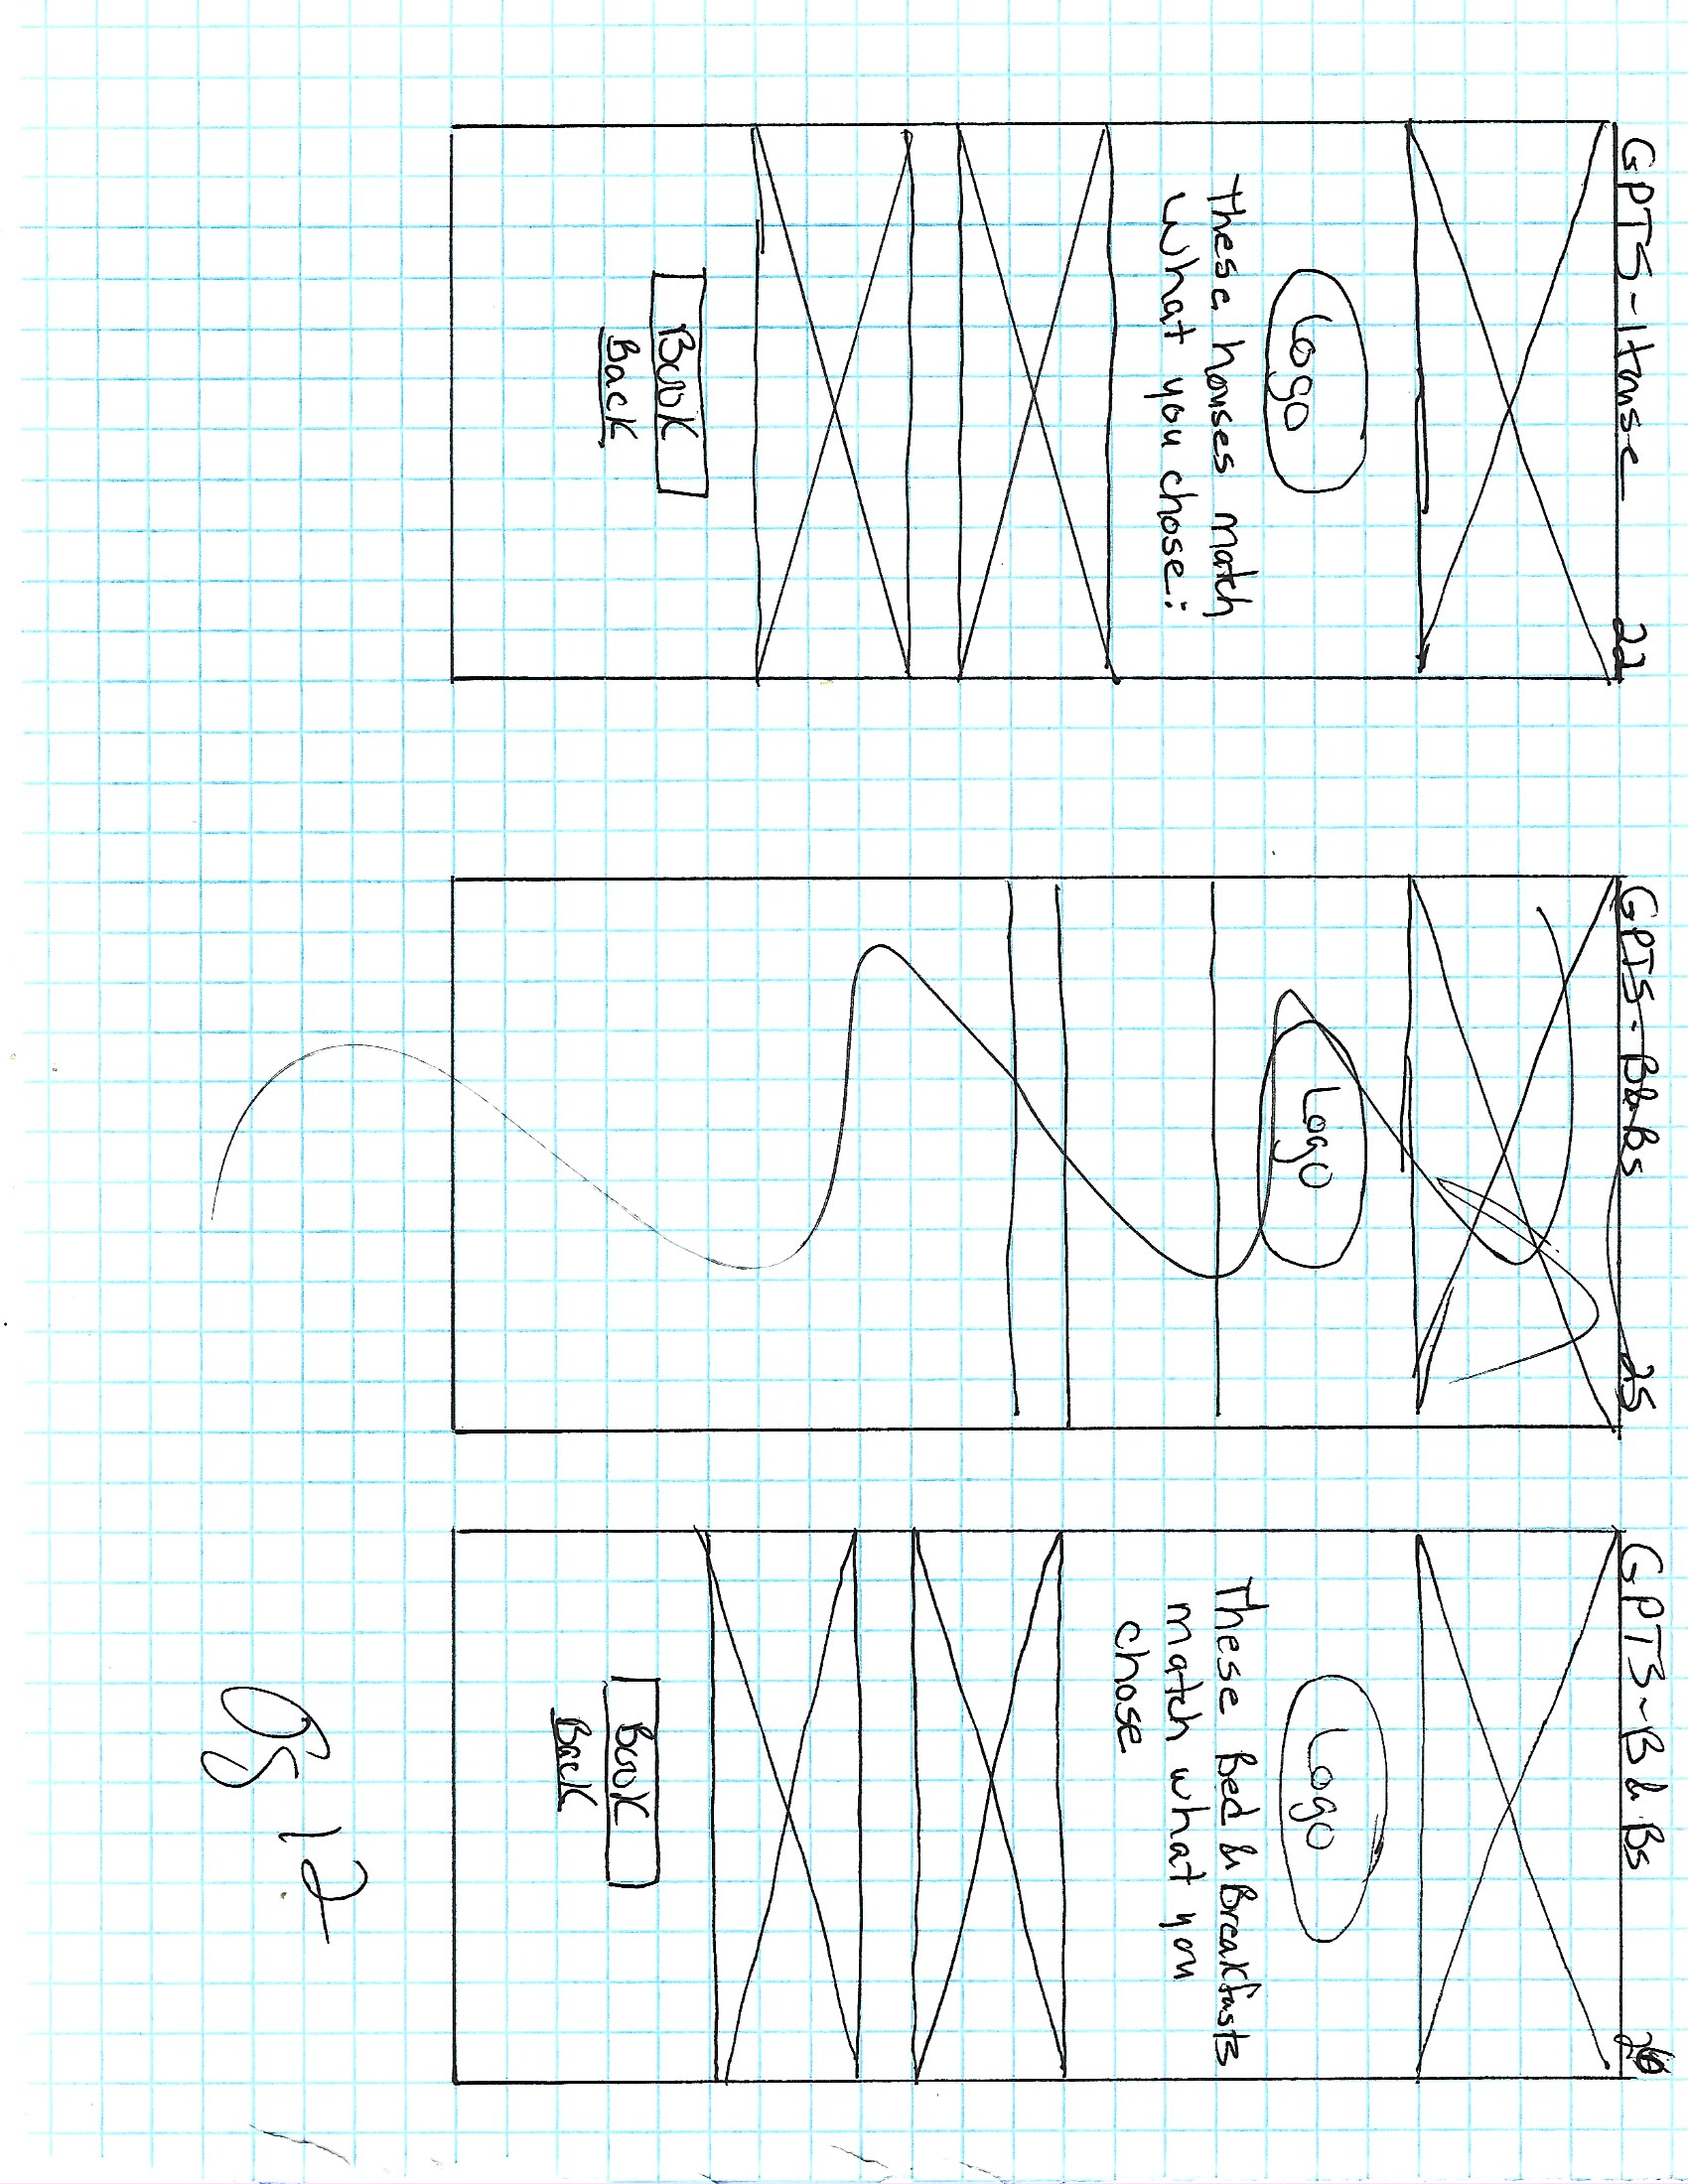 GPTS-House 22
Logo
These houses match
what you chose:
Book
Back
GPTS-B&Bs 25
Logo
GPTS-B&Bs
Logo
These Bed & Breakfasts
match what you
chose
Book
Back